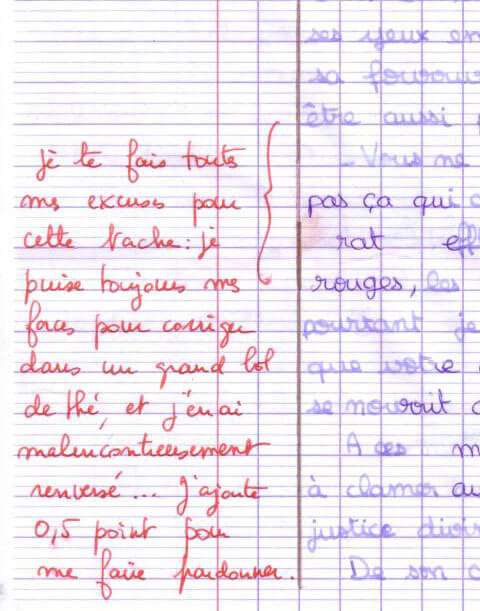 je te fais toutes
mes excuses pour
cette tache : je
puise toujours mes
forces pour corriger
dans un grand bol
de thé, et j'en ai
malencontreusement
renversé... J'ajoute
0,5 point pour
me faire pardonner.
ses yeux en
sa
être aussi
- Vous ne
pas ça qui
rat eff
rouges, les
pourtant je
que votre
se
A ces m
à clamer au
justice divi
De son